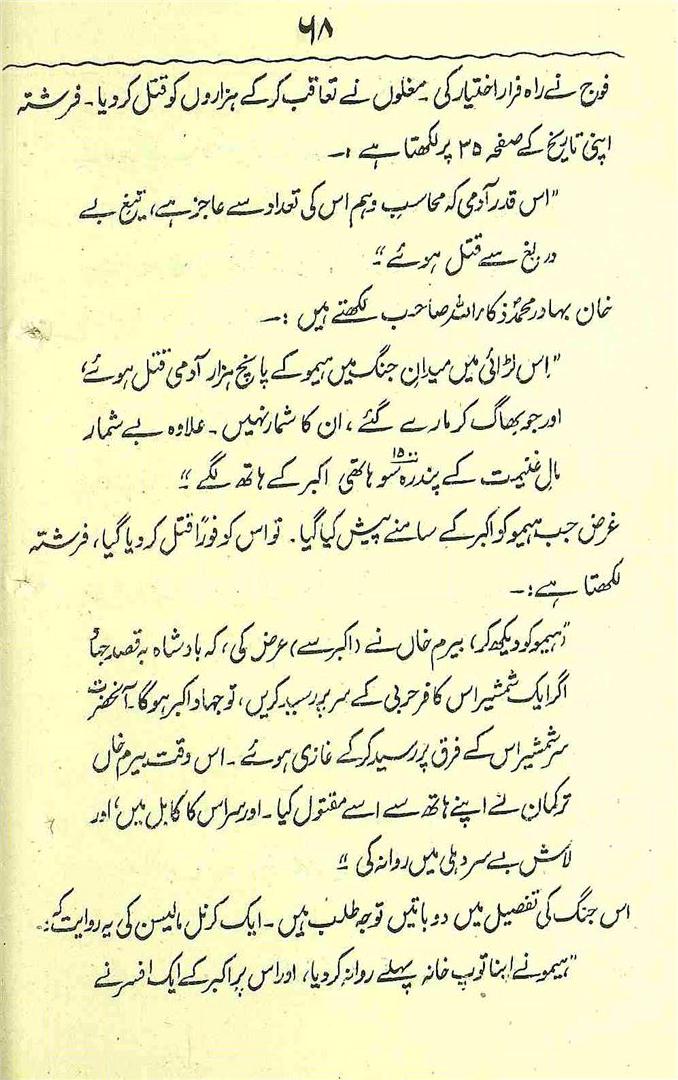 ۶۸
فوج نے راہ فرار اختیار کی۔ مغلوں نے تعاقب کرکے ہزاروں کو قتل کر دیا۔ فرشتہ
اپنی تاریخ کے صفحہ ۳۵ پر لکھتا ہے :۔
"اس قدر آدمی کہ محاسب وہم اس کی تعداد سے عاجز ہے، تیغ بے
دریغ سے قتل ہوئے"
خان بہادر محمد ذکاء اللہ صاحب لکھتے ہیں :۔
"اِس لڑائی میں میدانِ جنگ میں ہیمو کے پانچ ہزار آدمی قتل ہوئے،
اور جو بھاگ کر مارے گئے، ان کا شمار نہیں۔ علاوہ بے شمار
مالِ غنیمت کے پندرہ سو ۱۵۰۰ ہاتھی اکبر کے ہاتھ لگے"
غرض جب ہیمو کو اکبر کے سامنے پیش کیا گیا۔ تو اس کو فوراً قتل کر دیا گیا، فرشتہ
لکھتا ہے :۔
"(ہیمو کو دیکھ کر) بیرم خاں نے (اکبر سے) عرض کی، کہ بادشاہ بہ قصد جہاد
اگر ایک شمشیر اس کافر حربی کے سر پر رسید کریں، تو جہادِ اکبر ہوگا۔ آنحضرت
سرِ شمشیر اس کے فرق پر رسید کرکے غازی ہوئے۔ اس وقت بیرم خاں
ترکمان نے اپنے ہاتھ سے اسے مقتول کیا۔ اور سر اس کا کابل میں، اور
لاش بے سر دہلی میں روانہ کی"
اس جنگ کی تفصیل میں دو باتیں توجہ طلب ہیں۔ ایک کرنل مالیسن کی یہ روایت کہ :
"ہیمو نے اپنا توپ خانہ پہلے روانہ کر دیا، اور اس پر اکبر کے ایک افسر نے